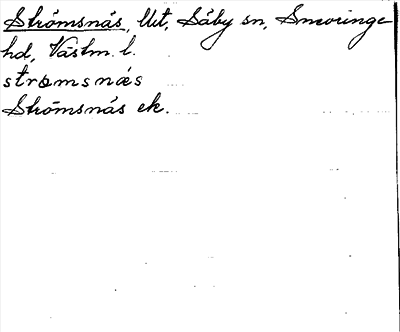 Strömsnäs, Ut, Säby sn, Snevringe
hd, Västm. l.
strømsnæs
Strömsnäs ek.